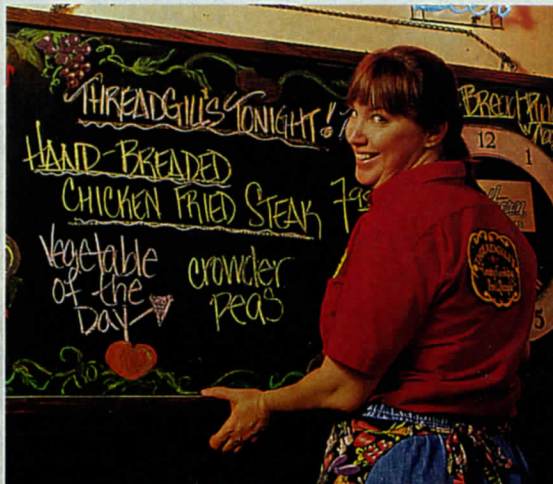 THREADGILL'S TONIGHT!
HAND-BREADED
CHICKEN FRIED STEAK
Vegetable
of the
Day
crowder
peas
Bread
12
1
5
THREADGILL'S